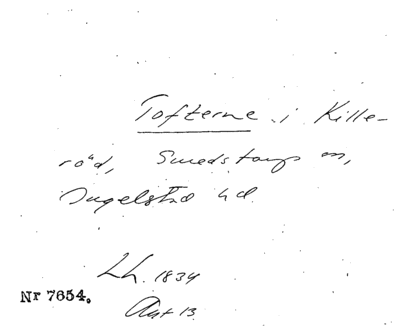 Tofterne i Kille-
röd, Smedstorps sn,
Ingelstad hd.
Lh. 1834
Akt 13
Nr 7654.